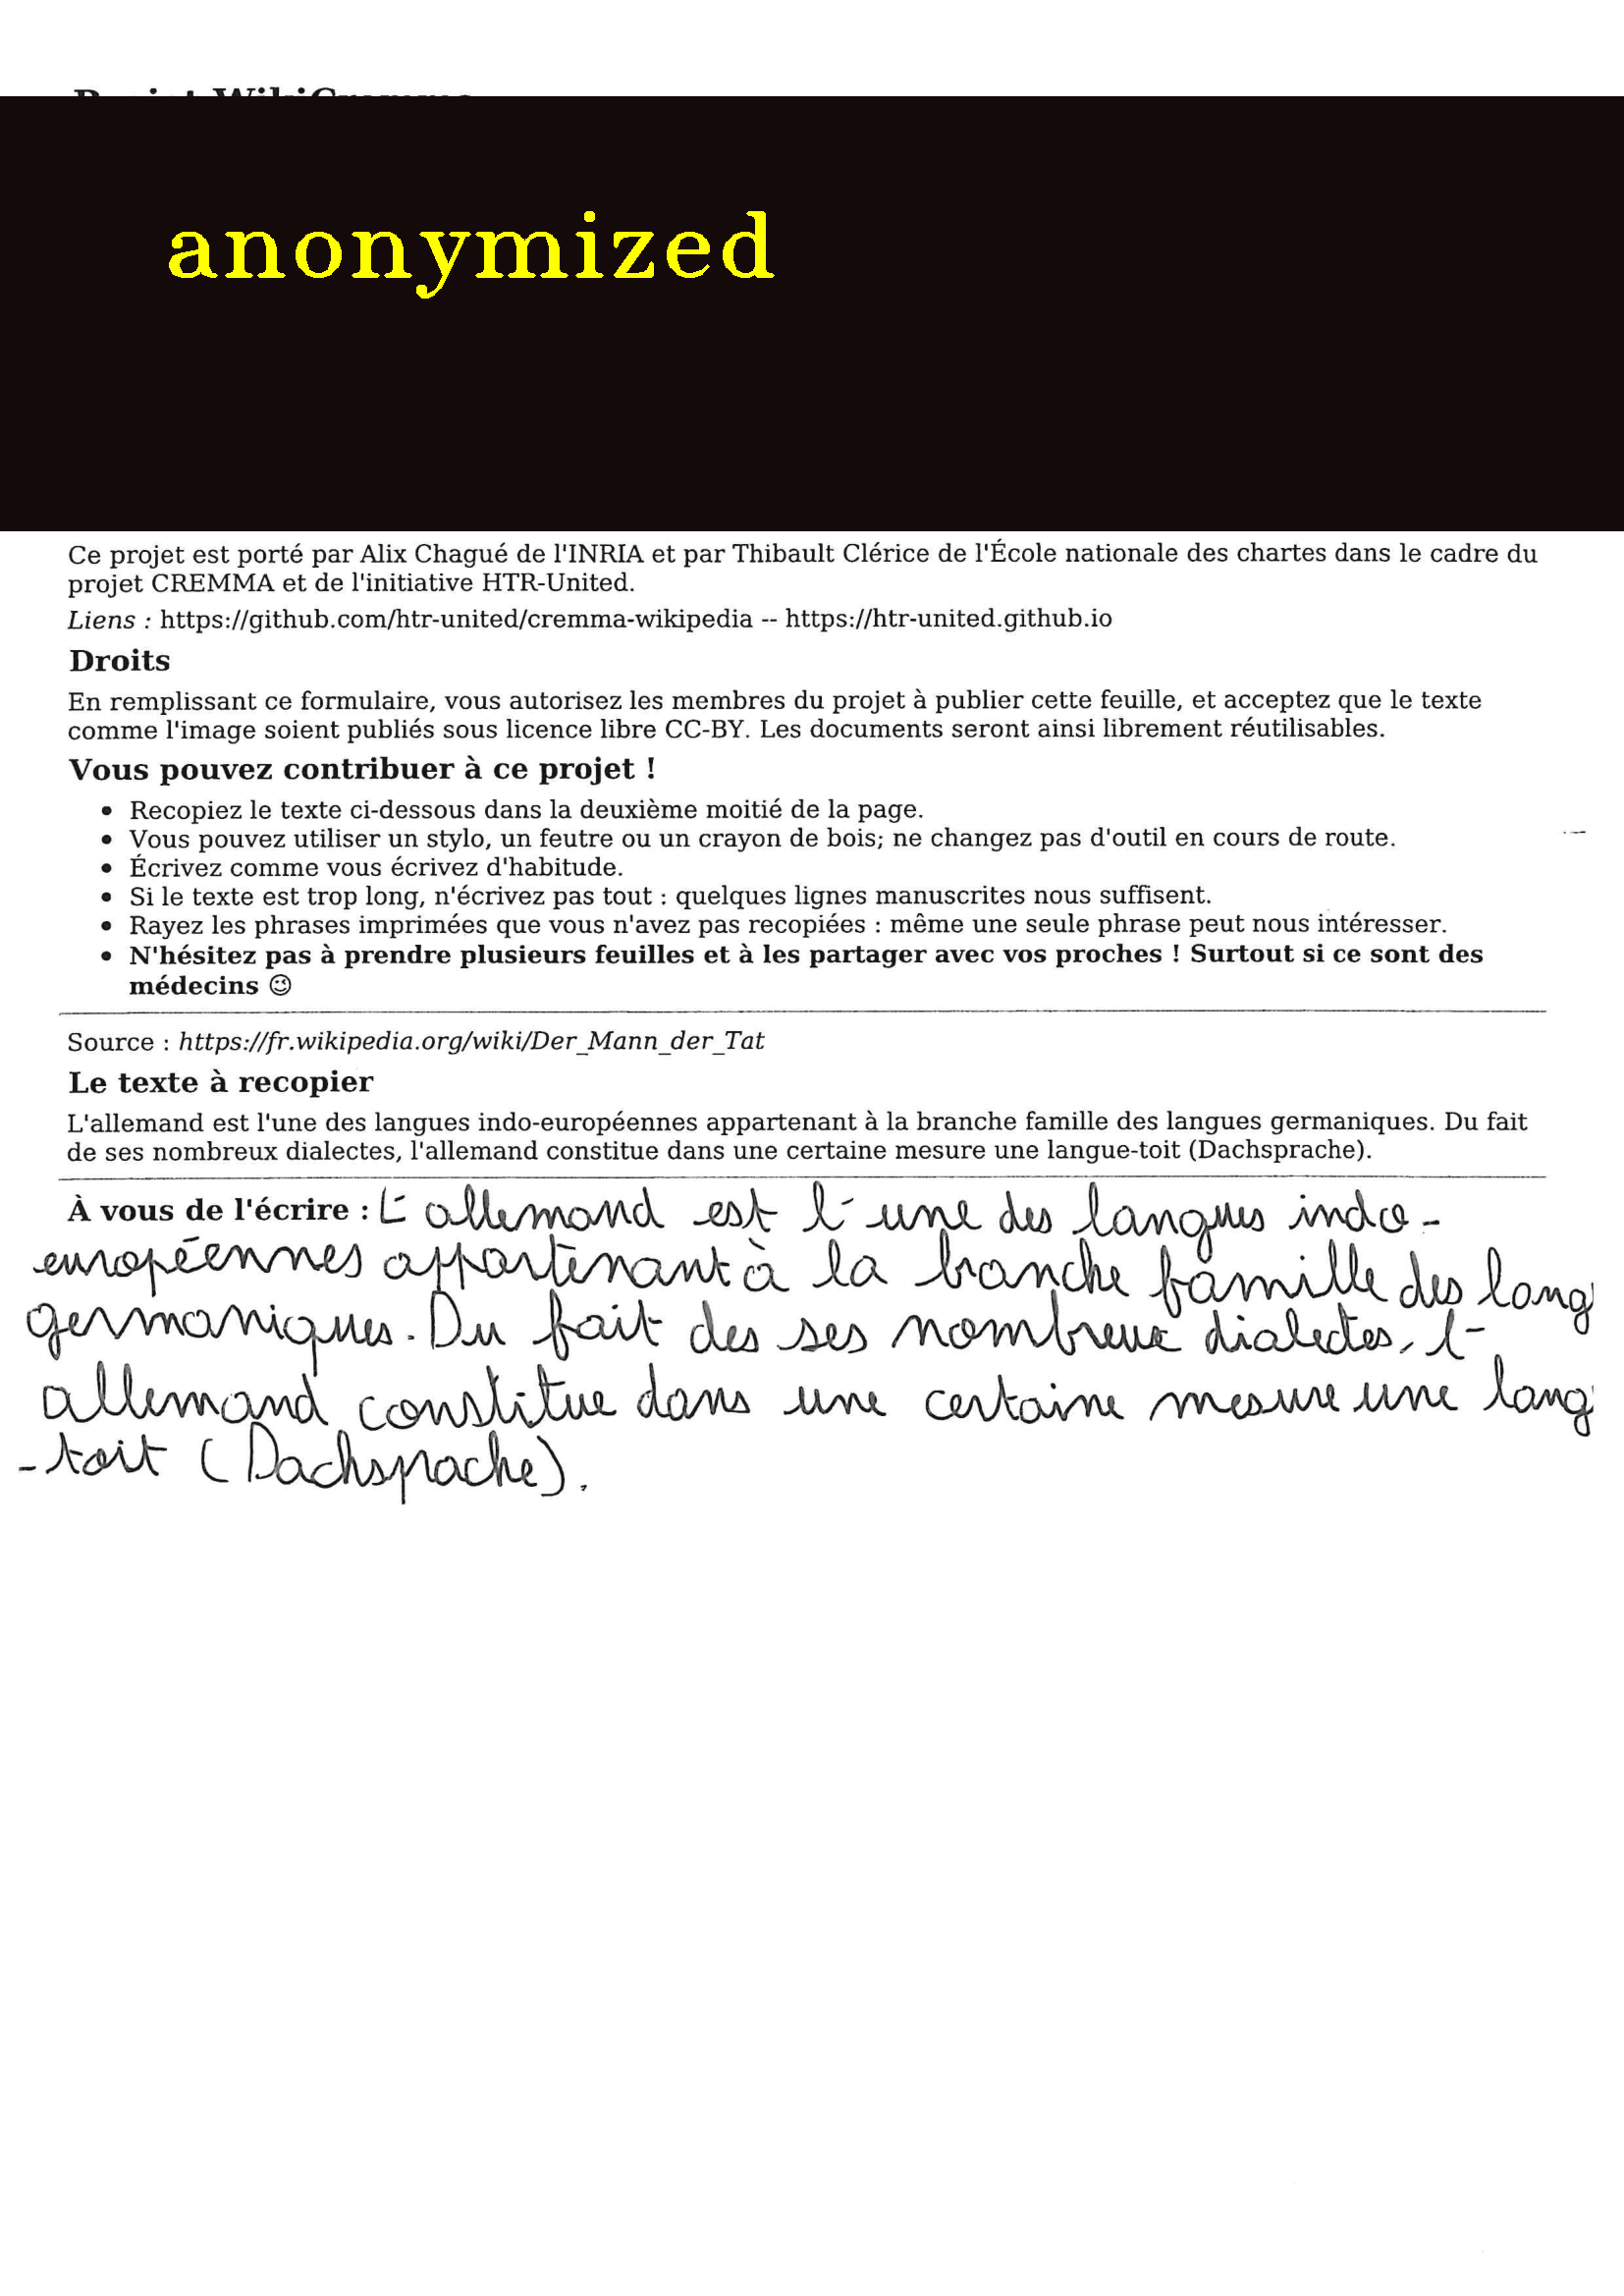 anonymized
Ce projet est porté par Alix Chagué de l'INRIA et par Thibault Clérice de l'École nationale des chartes dans le cadre du
projet CREMMA et de l'initiative HTR-United.
Liens : https://github.com/htr-united/cremma-wikipedia -- https://htr-united.github.io
Droits
En remplissant ce formulaire, vous autorisez les membres du projet à publier cette feuille, et acceptez que le texte
comme l'image soient publiés sous licence libre CC-BY. Les documents seront ainsi librement réutilisables.
Vous pouvez contribuer à ce projet !
• Recopiez le texte ci-dessous dans la deuxième moitié de la page.
• Vous pouvez utiliser un stylo, un feutre ou un crayon de bois; ne changez pas d'outil en cours de route.
• Écrivez comme vous écrivez d'habitude.
• Si le texte est trop long, n'écrivez pas tout : quelques lignes manuscrites nous suffisent.
• Rayez les phrases imprimées que vous n'avez pas recopiées : même une seule phrase peut nous intéresser.
• N'hésitez pas à prendre plusieurs feuilles et à les partager avec vos proches ! Surtout si ce sont des
médecins 😉
Source : https://fr.wikipedia.org/wiki/Der_Mann_der_Tat
Le texte à recopier
L'allemand est l'une des langues indo-européennes appartenant à la branche famille des langues germaniques. Du fait
de ses nombreux dialectes, l'allemand constitue dans une certaine mesure une langue-toit (Dachsprache).
À vous de l'écrire : L'allemand est l'une des langues indo-
européennes appartenant à la branche famille des lang
germaniques. Du fait des ses nombreux dialectes, l'
allemand constitue dans une certaine mesure une lang
-toit (Dachsprache).